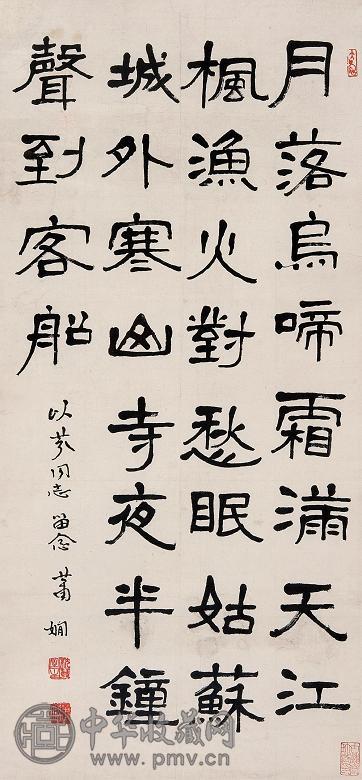 月落烏啼霜滿天江
楓漁火對愁眠姑蘇
城外寒山寺夜半鐘
聲到客船
以芬同志留念 蕭嫻
中华收藏网
www.pmv.cn